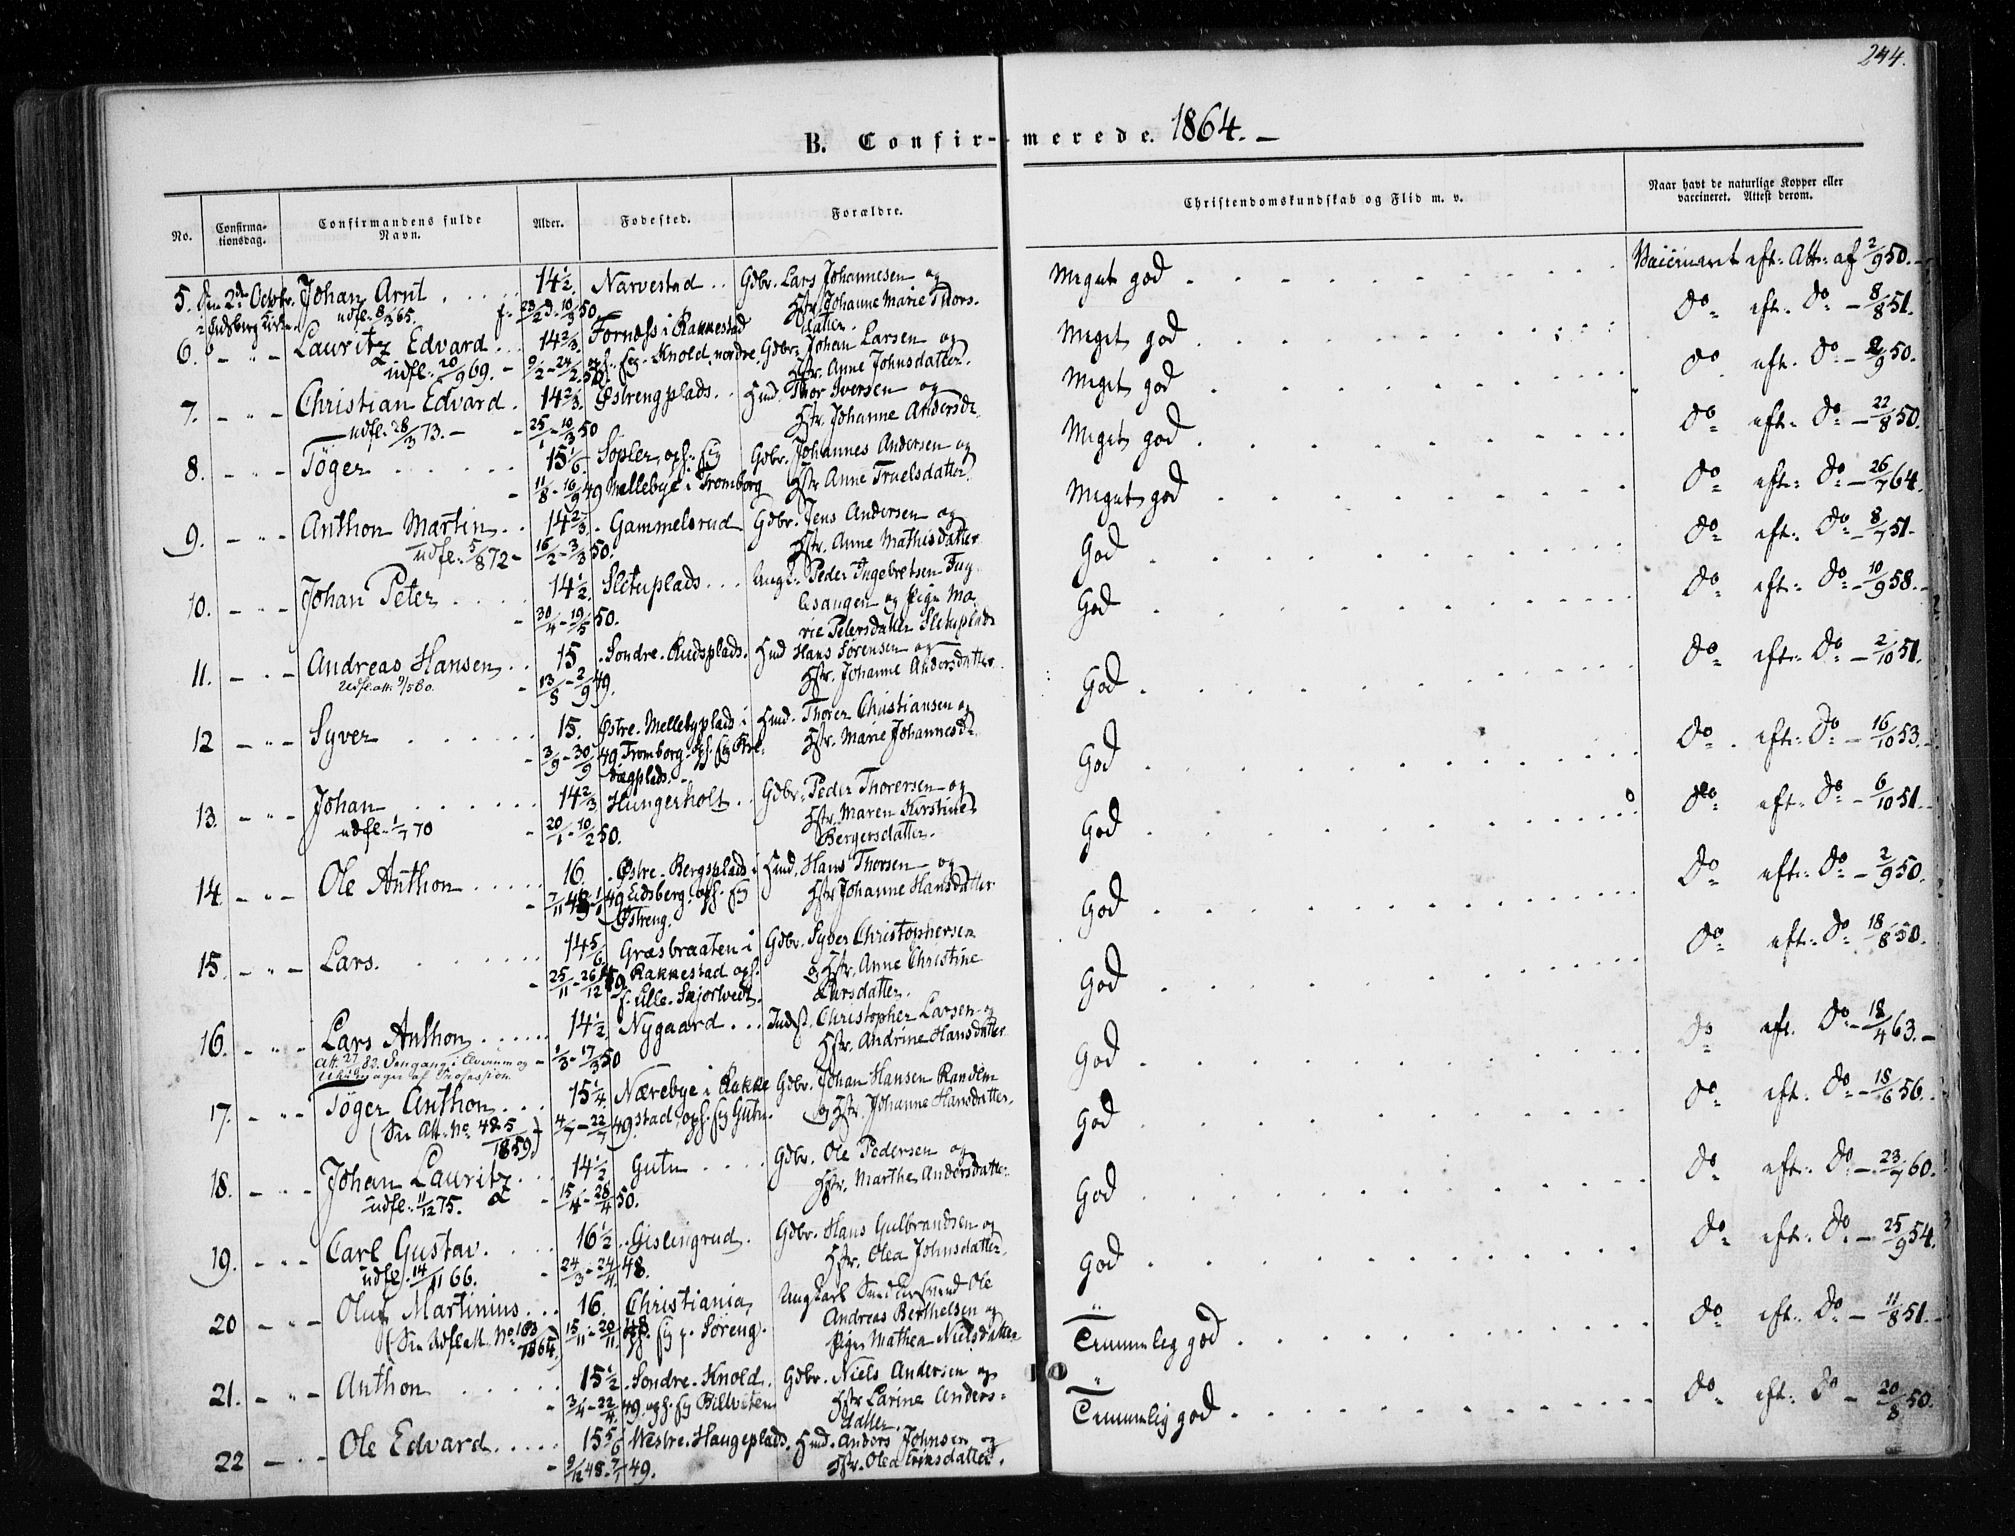 244.
B. Confirmerede. 1864. –
No. Confirmationsdag. Confirmandens fulde Navn. Alder. Fødested. Forældre. Christendomskundskab og Flid m. v. Naar havt de naturlige Kopper eller vaccineret. Attest derom.
5. Den 2den Octbr. Johan Arnt 14½ Narvestad Gdbr. Lars Johannesen og Meget god Vaccineret eft. Att. af 2/9 50.
Eidsberg Kirke udfl. 8/3 65. f. 23/2 d. 10/3 50 Hstr. Johanne Marie Thorsdatter.
6. Lauritz Edvard 14 2/3 Fornæss i Rakkestad Gdbr. Johan Larsen og Meget god do eft. do 8/8 51.
udfl. 20/9 69. 9/2 - 24/2 50. oph. sig Knold nordre Hstr. Anne Johnsdatter.
7. Christian Edvard 14 2/3 Østrengplads Hmd. Thor Iversen og Meget god do eft. do 2/9 50.
udfl. 28/3 73. 25/1 - 10/3 50 Hstr. Johanne Andersdr.
8. Töger 15 1/6 Sopler, oph. sig Gdbr. Johannes Andersen og Meget god do eft. do 22/8 50.
11/8 - 16/9 49 Mellebye i Tromborg Hstr. Anne Truelsdatter.
9. Anthon Martin 14 2/3 Gammelsrud Gdbr. Jens Andersen og Meget god do eft. do 26/7 64.
udfl. 5/8 72 16/2 - 3/3 50. Hstr. Anne Mathisdatter
10. Johan Peter 14½ Sletuplads Ungk. Peder Ingebretsen Fuglesangen og Pige Marie Petersdatter Sletuplads God do eft. do 8/7 51.
30/4 - 19/5 50.
11. Andreas Hansen 15 Søndre Rudsplads. Hmd Hans Sørensen og God do eft. do 10/9 58.
Udfl. att. 9/5 80. 13/8 - 2/9 49. Hstr. Johanne Andersdatter
12 Syver 15. Østre Mellebyplads i Hmd. Thorer Christiansen og God do eft. do 2/10 51.
3/9 - 30/9 49 Tromborg oph. sig Hstr. Marie Johannesd.
13. Johan 14 2/3 Hungerholt Gdbr. Peder Thorersen og God do eft. do 16/10 53.
udfl. 1/7 70 20/1 - 10/2 50. Hstr. Maren Kirstine Bergersdatter.
14. Ole Anthon 16. Østre Bergsplads i Hmd. Hans Thorsen og God do eft. do 6/10 51.
7/11 48 - 1/1 49 Eidsberg oph. sig Østreng. Hstr. Johanne Hansdatter
15. Lars. 14 5/6 Græsbraaten i Gdbr. Syver Christophersen God do eft. do 2/9 50.
25/11 - 26/12 49 Rakkestad oph. s. Lille Skjørtvedt. og Hstr. Anne Christine Larsdatter.
16. Lars Anthon 14½ Nygaard Inds. Christopher Larsen og God do eft. do 18/8 50.
1/3 - 17/3 50 Hstr. Andrine Hansdatter
17. Töger Anthon 15¼ Nærebye i Rakke Gdbr. Johan Hansen Randem God do eft. do 18/4 63.
(Se Att. No 425/1859) 4/7 - 22/7 49 stad, oph. sig Gutu. og Hstr. Johanne Hansdatter.
18. Johan Lauritz 14½ Gutu Gdbr. Ole Pedersen og God do eft. do 18/6 56.
udfl. 11/12 75. 15/4 - 28/4 50. Hstr. Marthe Andersdatter
19. Carl Gustav. 16½ Gislingrud. Gdbr. Hans Gulbrandsen og God do eft. do 23/7 60.
udfl. 14/11 66. 24/3 - 24/4 48. Hstr. Olea Johnsdatter.
20 Oluf Martinius 16. Christiania, Ungkarl Snedkersvend Ole God do eft. do 25/9 54.
(Se Udfl. Att. No 183/1864) 15/11 - 20/11 48 oph. sig p. Søreng. Andreas Berthelsen og Pige Mathea Nielsdatter
21. Anthon 15½ Søndre Knold Gdbr. Niels Andersen og Temmelig god do eft. do 11/8 51.
3/4 - 22/4 49. oph. sig Hstr Larine Andersdatter.
22 Ole Edvard 15 5/6 Westre Haugeplads Hmd. Anders Johnsen og Temmelig god do eft. do 20/8 50.
9/12 48 - 7/1 49. Hstr. Olea Eriksdatter.